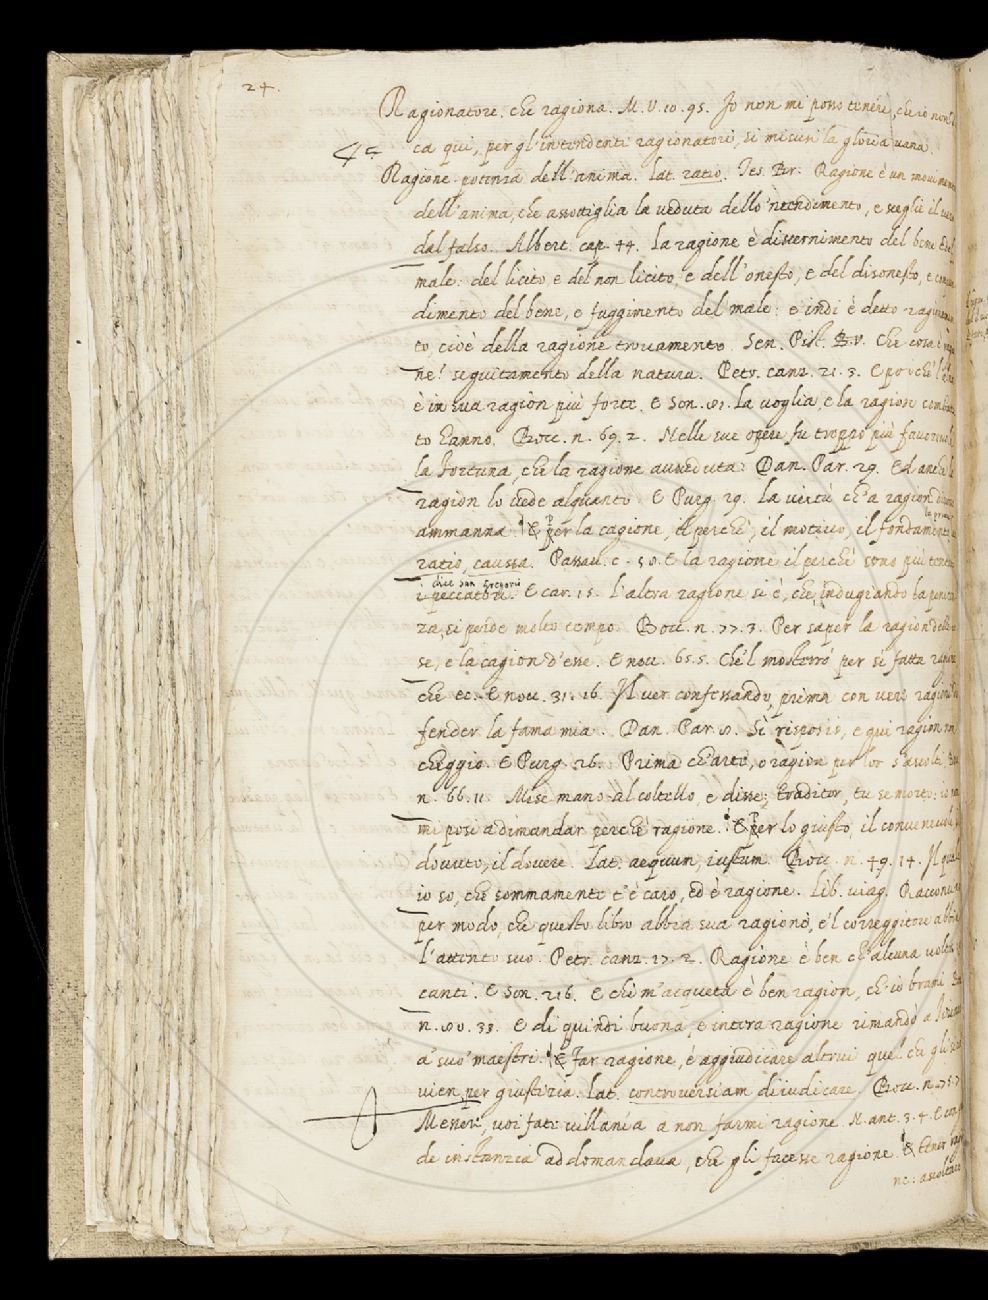 24.
Ragionatore. che ragiona. M. V. 10. 95. Io non mi posso tenere, che io non
ca qui, per gl'intendenti ragionatori, si misuri la gloria vana.
Ragione. potenza dell'anima. Lat. ratio. Tes. Br. Ragione è un movimento
dell'anima, che assottiglia la veduta dello 'ntendimento, e sceglie il vero
dal falso. Albert. cap. 44. La ragione è discernimento del bene e del
male: del licito, e del non licito, e dell'onesto, e del disonesto, e
dimento del bene, e fuggimento del male: e indi è detto
to, cioè della ragione trovamento. Sen. Pist. B.V. Che cosa è
ne? seguitamento della natura. Petr. canz. 21. 3. E poichè l'
è in sua ragion più forte. E Son. 81. La voglia, e la ragion
to hanno. Bocc. n. 69. 2. Nelle sue opere fu troppo più favorevole
la Fortuna, che la ragione avveduta. Dan. Par. 29. Ed anche la
ragion lo vede alquanto. E Purg. 29. La vertù ch'a ragion
ammanna. E per la cagione, il perchè, il motivo, il fondamento
ratio, caussa. Passav. c. 50. E la ragione il perchè sono più
dice san Gregorio
i peccatori. E car. 15. L'altra ragione si è, che indugiando la
za, si perde molto tempo. Bocc. n. 77. 3. Per saper la ragion
se, e la cagion d'esse. E nov. 65. 5. Che'l mosterrò per sì fatta ragione
che ec. E nov. 31. 16. Il ver confessando, prima con vere ragioni
fender la fama mia. Dan. Par. 8. Sì rispos'io, e qui ragion non
cheggio. E Purg. 26. Prima ch'arte, o ragion per lor s'ascolti
n. 66. 11. Mise mano al coltello, e disse: traditor, tu se morto: io non
mi posi a dimandar perchè ragione. E per lo giusto, il convenevole
dovuto, il dovere. Lat. aequum, iustum. Bocc. n. 49. 14. Il quale
io so, che sommamente t'è caro, ed è ragione. Lib. viag.
per modo, che questo libro abbia sua ragione, e'l correggitore abbia
l'attinto suo. Petr. canz. 17. 2. Ragione è ben ch'alcuna volta
canti. E Son. 216. E chi m'acqueta è ben ragion, ch'io brami
n. 80. 33. E di quindi buona, e intera ragione rimandò a Firenze
a' suo' maestri. E Far ragione, è aggiudicare altrui quel che gli
vien per giustizia. Lat. controversiam diiudicare. Bocc. n. 75. 7
Messer, voi fate villanía a non farmi ragione. N. ant. 3. 4. E
de instanzia addomandava, che gli facesse ragione. E tener